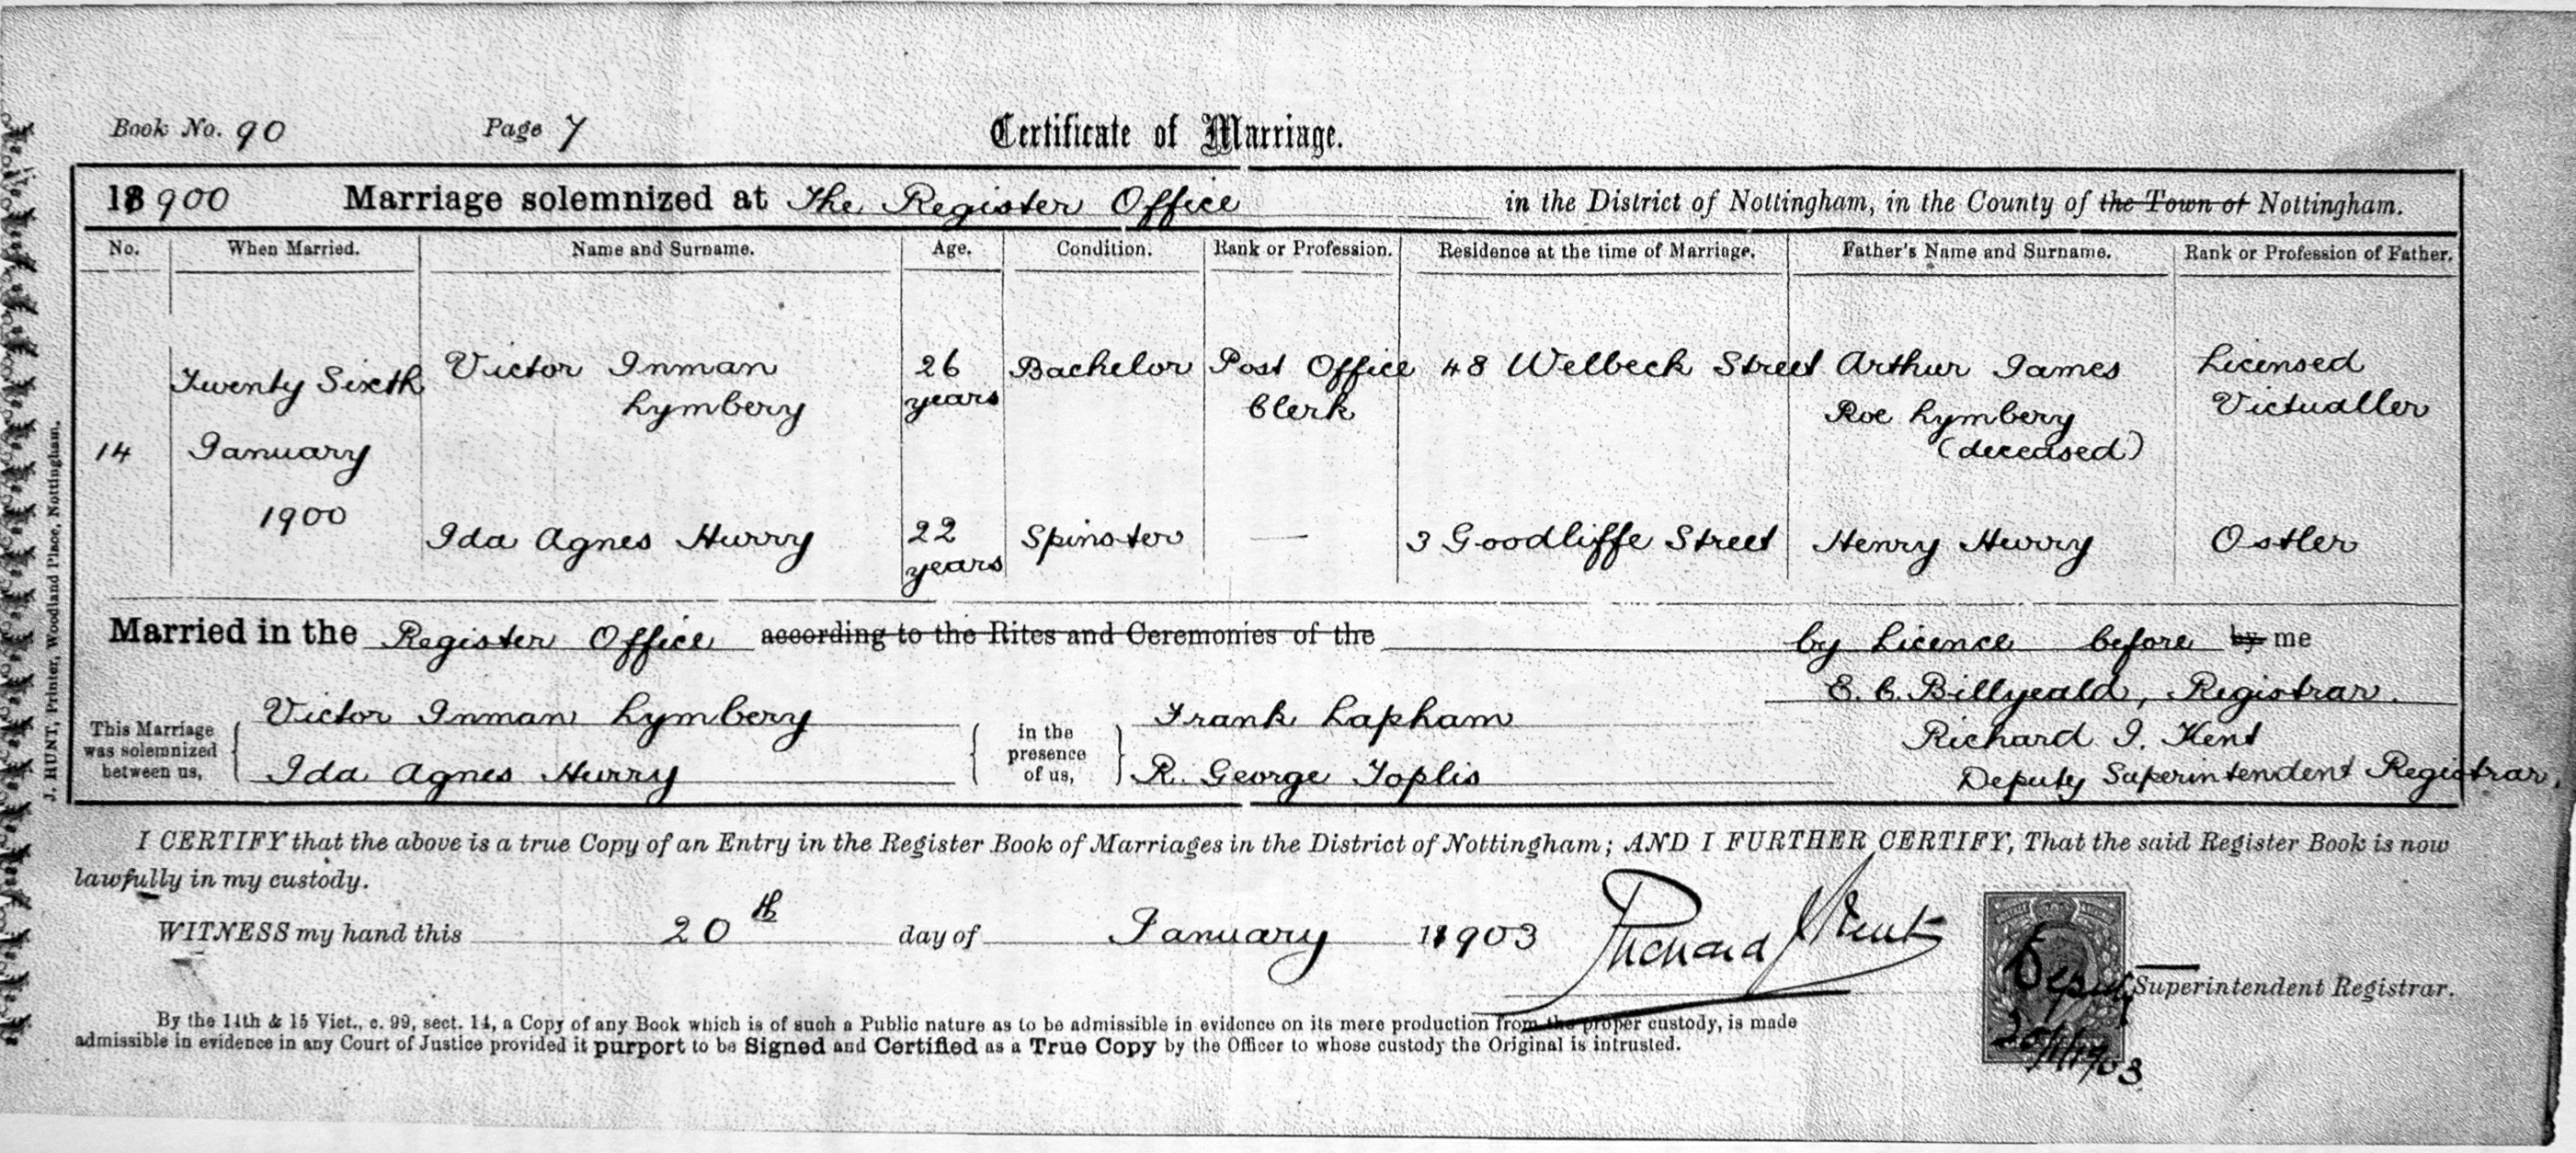 Book No. 90 Page 7 Certificate of Marriage.
18900 Marriage solemnized at The Register Office in the District of Nottingham, in the County of the Town of Nottingham.
No. When Married. Name and Surname. Age. Condition. Rank or Profession. Residence at the time of Marriage. Father's Name and Surname. Rank or Profession of Father.
14
Twenty Sixth
January
1900
Victor Inman
Lymbery
26
years
Bachelor
Post Office
Clerk
48 Welbeck Street
Arthur James
Roe Lymbery
(deceased)
Licensed
Victualler
Ida Agnes Hurry
22
years
Spinster
—
3 Goodliffe Street
Henry Hurry
Ostler
Married in the Register Office according to the Rites and Ceremonies of the by Licence before by me
This Marriage
was solemnized
between us,
Victor Inman Lymbery
Ida Agnes Hurry
in the
presence
of us,
Frank Lapham
R. George Toplis
E. C. Billyeald, Registrar.
Richard J. Kent
Deputy Superintendent Registrar.
I CERTIFY that the above is a true Copy of an Entry in the Register Book of Marriages in the District of Nottingham; AND I FURTHER CERTIFY, That the said Register Book is now
lawfully in my custody.
WITNESS my hand this 20th day of January 18903 Richard J Kent
Deputy Superintendent Registrar.
20/1/1903
By the 14th & 15 Vict., c. 99, sect. 14, a Copy of any Book which is of such a Public nature as to be admissible in evidence on its mere production from the proper custody, is made
admissible in evidence in any Court of Justice provided it purport to be Signed and Certified as a True Copy by the Officer to whose custody the Original is intrusted.
J. HUNT, Printer, Woodland Place, Nottingham.